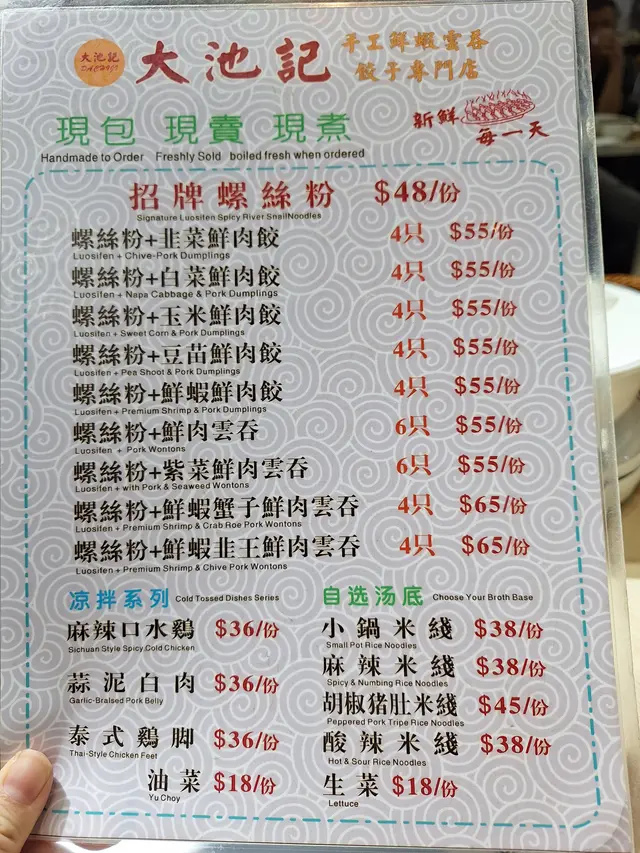 大池記
DACHIJI
大池記
手工鮮蝦雲吞
餃子專門店
新鮮
每一天
現包 現賣 現煮
Handmade to Order Freshly Sold boiled fresh when ordered
招牌螺絲粉 $48/份
Signature Luosifen Spicy River SnailNoodles
螺絲粉+韭菜鮮肉餃 4只 $55/份
Luosifen + Chive-Pork Dumplings
螺絲粉+白菜鮮肉餃 4只 $55/份
Luosifen + Napa Cabbage & Pork Dumplings
螺絲粉+玉米鮮肉餃 4只 $55/份
Luosifen + Sweet Corn & Pork Dumplings
螺絲粉+豆苗鮮肉餃 4只 $55/份
Luosifen + Pea Shoot & Pork Dumplings
螺絲粉+鮮蝦鮮肉餃 4只 $55/份
Luosifen + Premium Shrimp & Pork Dumplings
螺絲粉+鮮肉雲吞 6只 $55/份
Luosifen + Pork Wontons
螺絲粉+紫菜鮮肉雲吞 6只 $55/份
Luosifen + with Pork & Seaweed Wontons
螺絲粉+鮮蝦蟹子鮮肉雲吞 4只 $65/份
Luosifen + Premium Shrimp & Crab Roe Pork Wontons
螺絲粉+鮮蝦韭王鮮肉雲吞 4只 $65/份
Luosifen + Premium Shrimp & Chive Pork Wontons
凉拌系列 Cold Tossed Dishes Series
麻辣口水鷄 $36/份
Sichuan Style Spicy Cold Chicken
蒜泥白肉 $36/份
Garlic-Braised Pork Belly
泰式鷄脚 $36/份
Thai-Style Chicken Feet
油菜 $18/份
Yu Choy
自选汤底 Choose Your Broth Base
小鍋米綫 $38/份
Small Pot Rice Noodles
麻辣米綫 $38/份
Spicy & Numbing Rice Noodles
胡椒猪肚米綫 $45/份
Peppered Pork Tripe Rice Noodles
酸辣米綫 $38/份
Hot & Sour Rice Noodles
生菜 $18/份
Lettuce